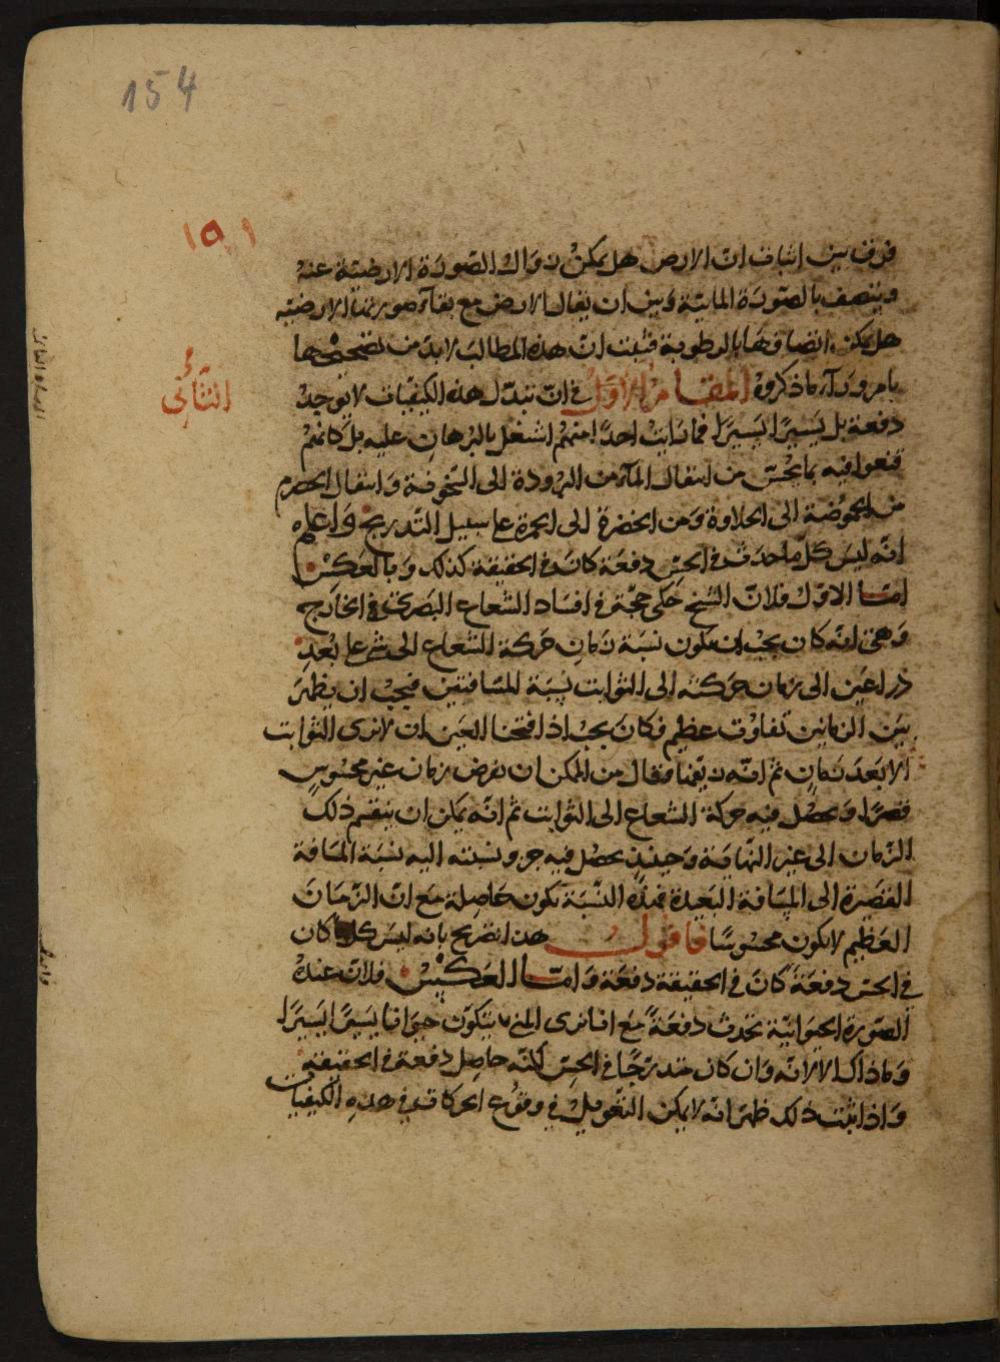 154
١٥١
فرق بين اثبات ان الارض هل يمكن زوال الصورة الارضية عنه
ويتصف بالصورة المائية وبين ان يقال الارض مع بقاء صورتها الارضيه
هل يمكن اتصافها بالرطوبة فثبت ان هذه المطالب لابد من تصحيحها
بامر وراء ما ذكروه المقام الاول في ان تبدل هذه الكيفيات لا يوجد
الثاني
دفعة بل يسيرا يسيرا فما رايت احدا منهم اشتغل بالبرهان عليه بل كانهم
قنعوا فيه بما يحس من انتقال الماء من البرودة الى السخونة وانتقال الحصرم
من الحموضة الى الحلاوة ومن الخضرة الى الحمرة على سبيل التدريج واعلم
انه ليس كل ما حدث في الحس دفعة كان في الحقيقة كذلك وبالعكس
اما الاول فلان الشيخ حكى حجة في افساد الشعاع البصرى في الخارج
وهى انه كان يجب ان تكون نسبة زمان حركة الشعاع الى شى على بعد
ذراعين الى زمان حركته الى الثوابت نسبة المسافتين فيجب ان يظهر
بين الزمانين تفاوت عظيم فكان يجب اذا فتحنا العين ان لا نرى الثوابت
الا بعد زمان ثم انه زيفها فقال من الممكن ان نفرض زمان غير محسوس
قصرا ويحصل فيه حركة الشعاع الى الثوابت ثم انه يمكن ان ينقسم ذلك
الزمان الى غير النهاية وحينئذ يحصل فيه جزو نسبته اليه نسبة المسافة
القصيرة الى المسافة البعيدة فهذه النسبة تكون حاصلة مع ان الزمان
العظيم لا يكون محسوسا فاقول هذا تصريح بانه ليس كلما كان
في الحس دفعة كان في الحقيقة دفعة واما العكس فلان عنده
الصورة الحيوانية تحدث دفعة مع انا نرى المنى يتكون حيوانا يسيرا يسيرا
وما ذاك الا لانه وان كان متدرجا في الحس لكنه حاصل دفعة في الحقيقة
واذا ثبت ذلك ظهر انه لا يمكن التعويل في وقوع الحركات في هذه الكيفيات